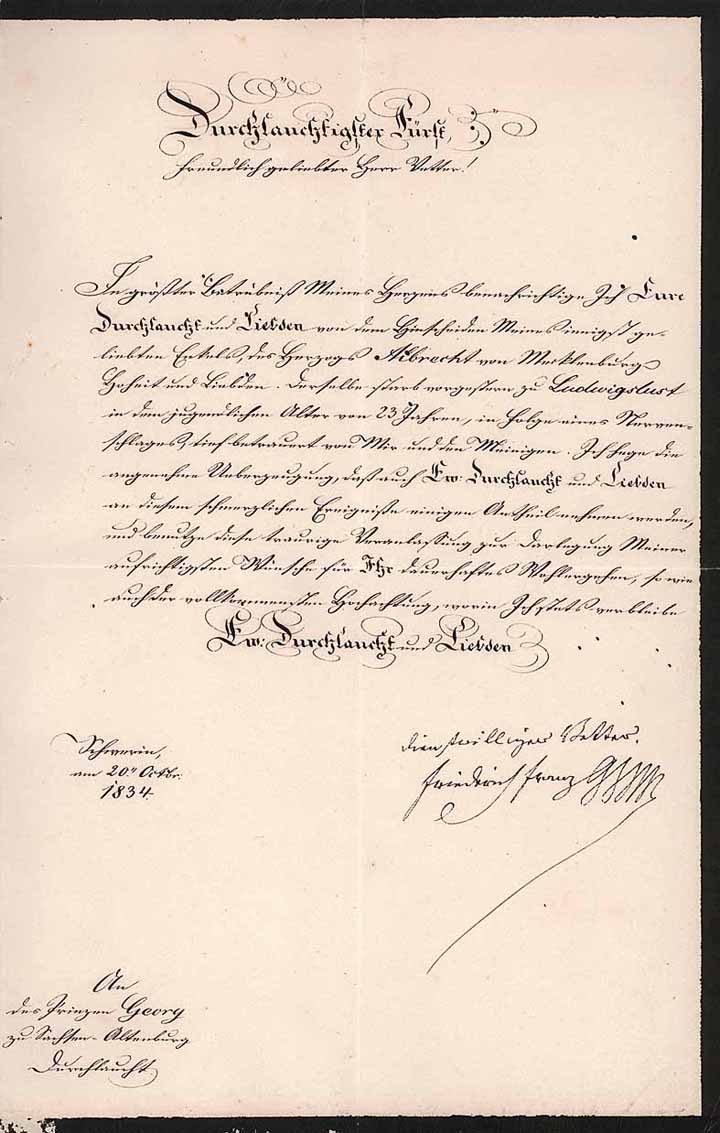 Durchlauchtigster Fürst,
freundlich geliebter Herr Vetter!
In größter Betrübniß Meines Herzens benachrichtige Ich Eure
Durchlaucht und Liebden von dem Hinscheiden Meines innigst ge-
liebten Enkels, des Herzogs Albrecht von Mecklenburg
Hoheit und Liebden. Derselbe starb vorgestern zu Ludwigslust
in dem jugendlichen Alter von 23 Jahren, in Folge eines Nerven-
schlages, tief betrauert von Mir und den Meinigen. Ich hege die
angenehme Ueberzeugung, daß auch Ew: Durchlaucht und Liebden
an diesem schmerzlichen Ereigniße einigen Antheil nehmen werden,
und benutze diese traurige Veranlassung zur Darlegung Meiner
aufrichtigsten Wünsche für Ihr dauerhaftes Wohlergehen, so wie
auch der vollkommensten Hochachtung, worin Ich stets verbleibe
Ew: Durchlaucht und Liebden
Schwerin,
am 20n Octbr.
1834.
dienstwilliger Vetter.
Friedrich Franz
An
des Prinzen Georg
zu Sachsen-Altenburg
Durchlaucht.